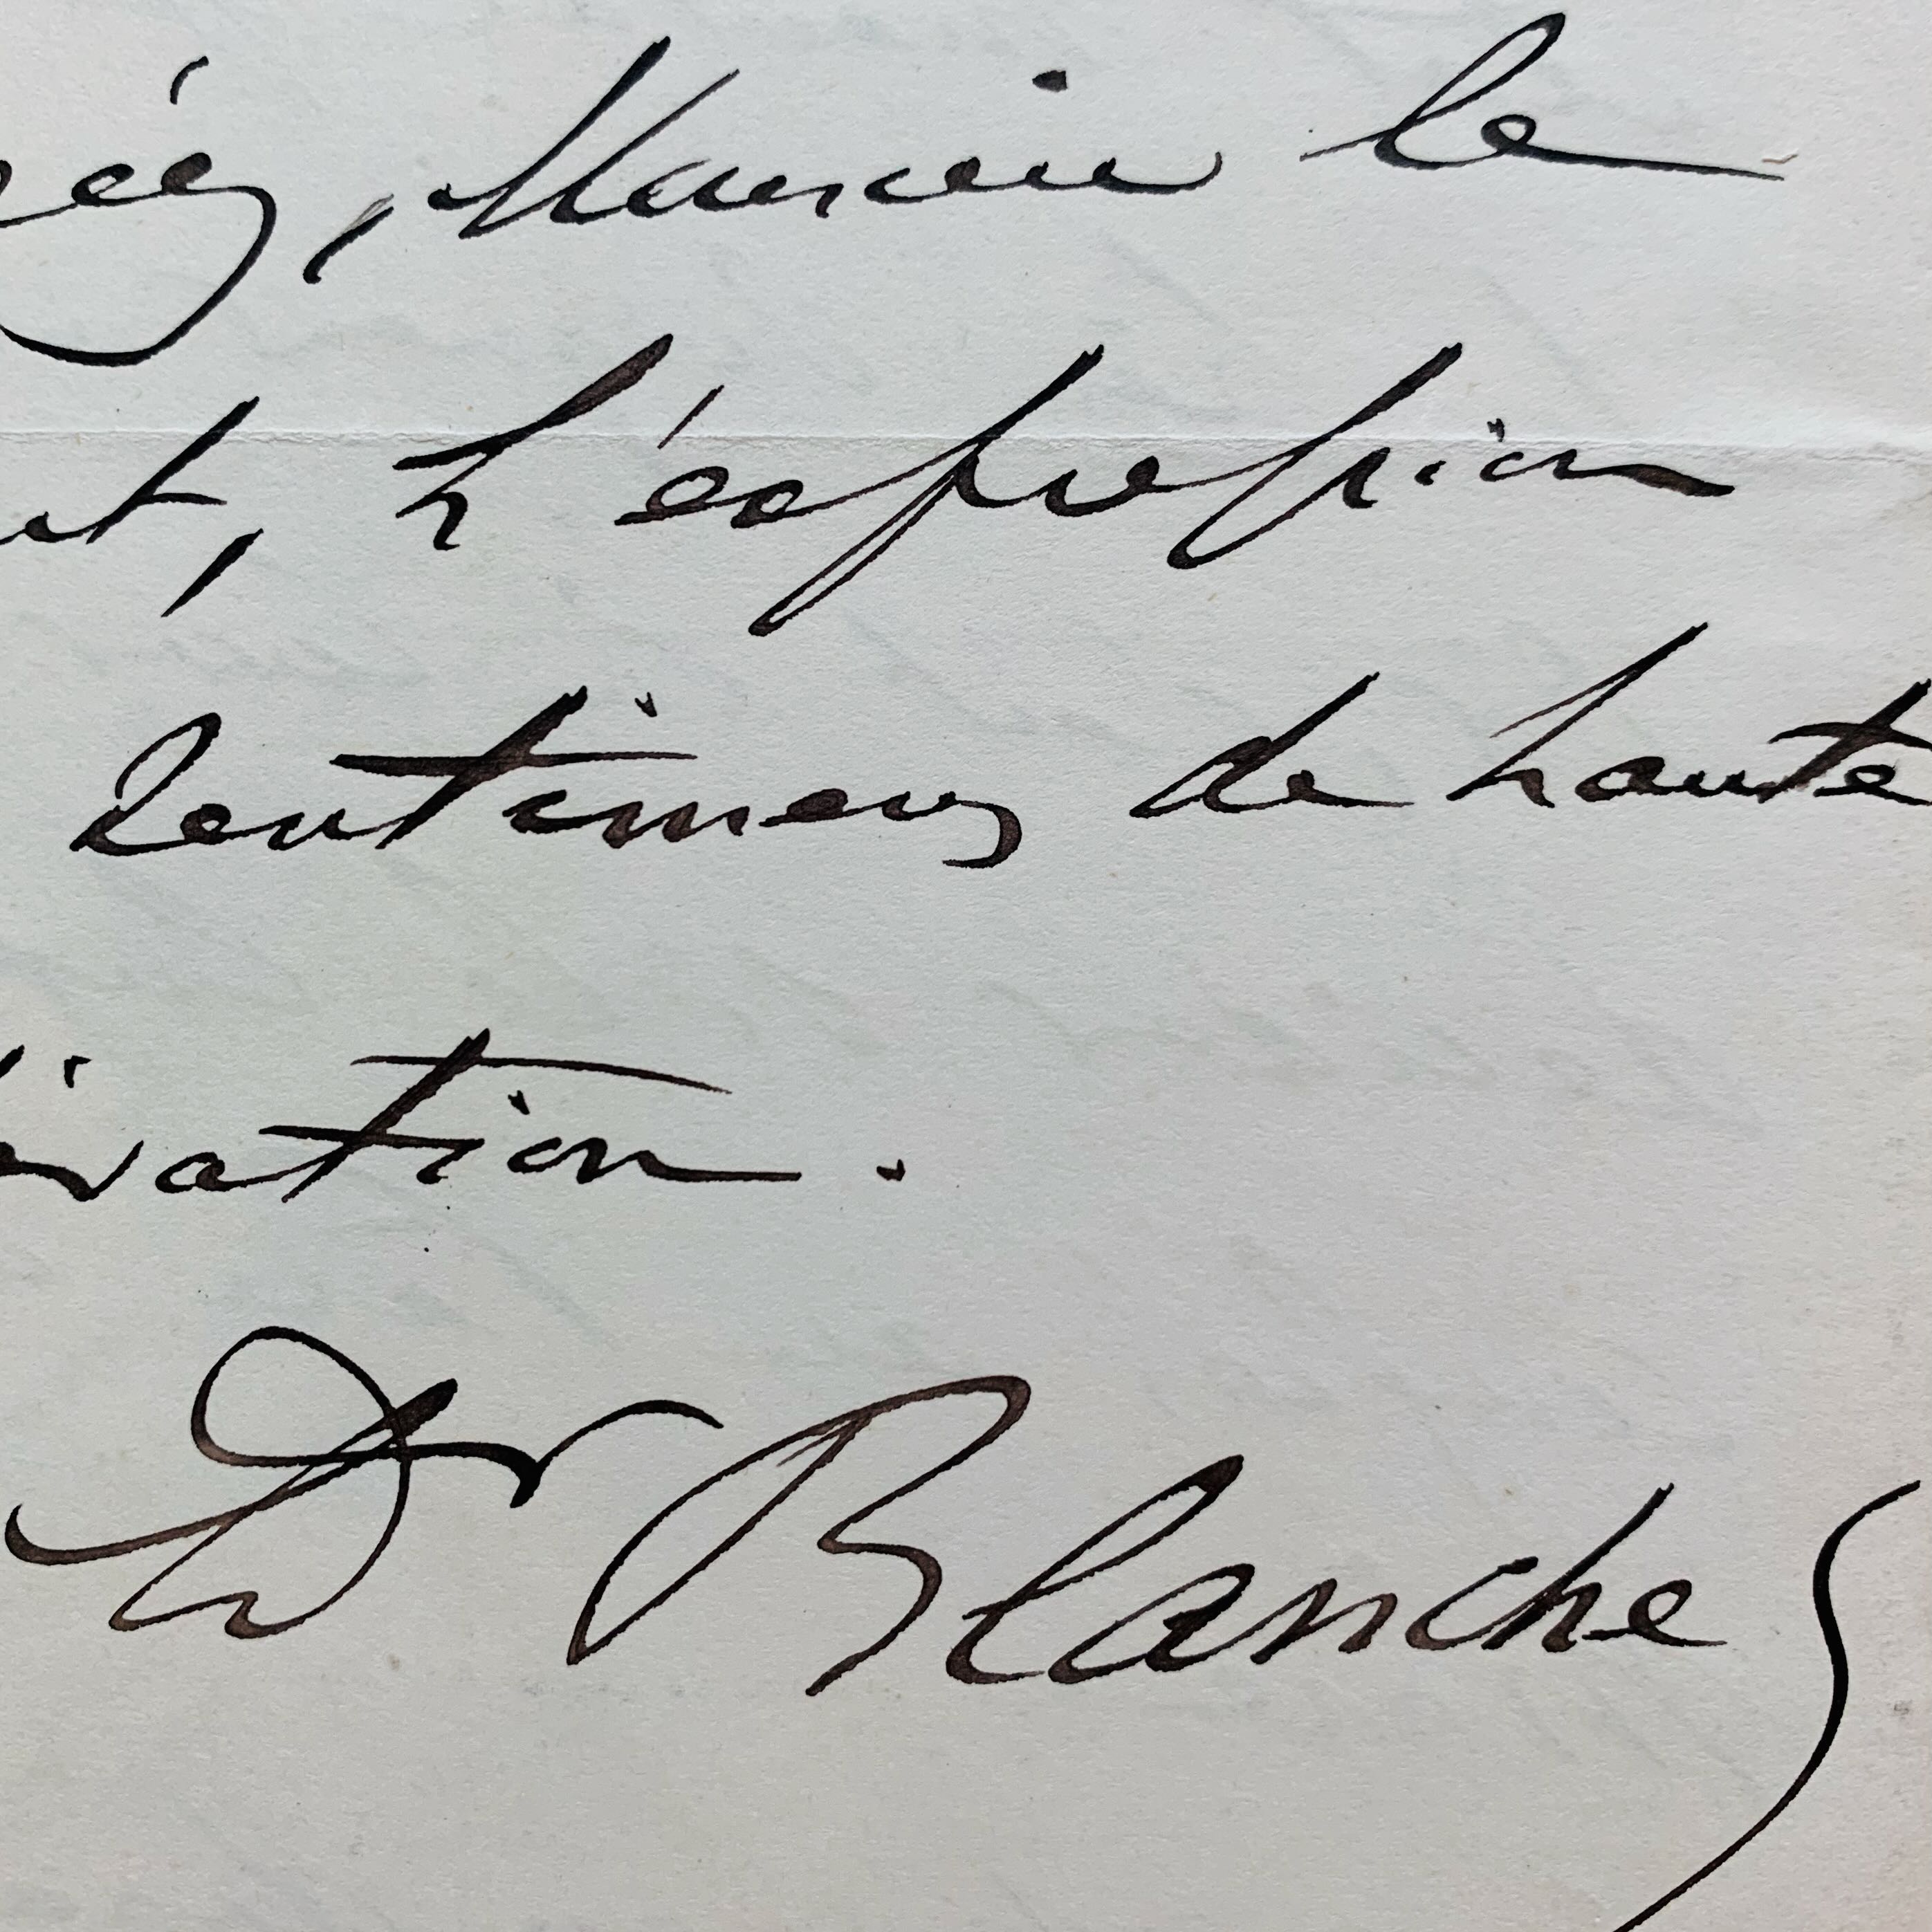 éez, Monsieur le
t, l'expression
sentimens de haute
ération.
Dr Blanche